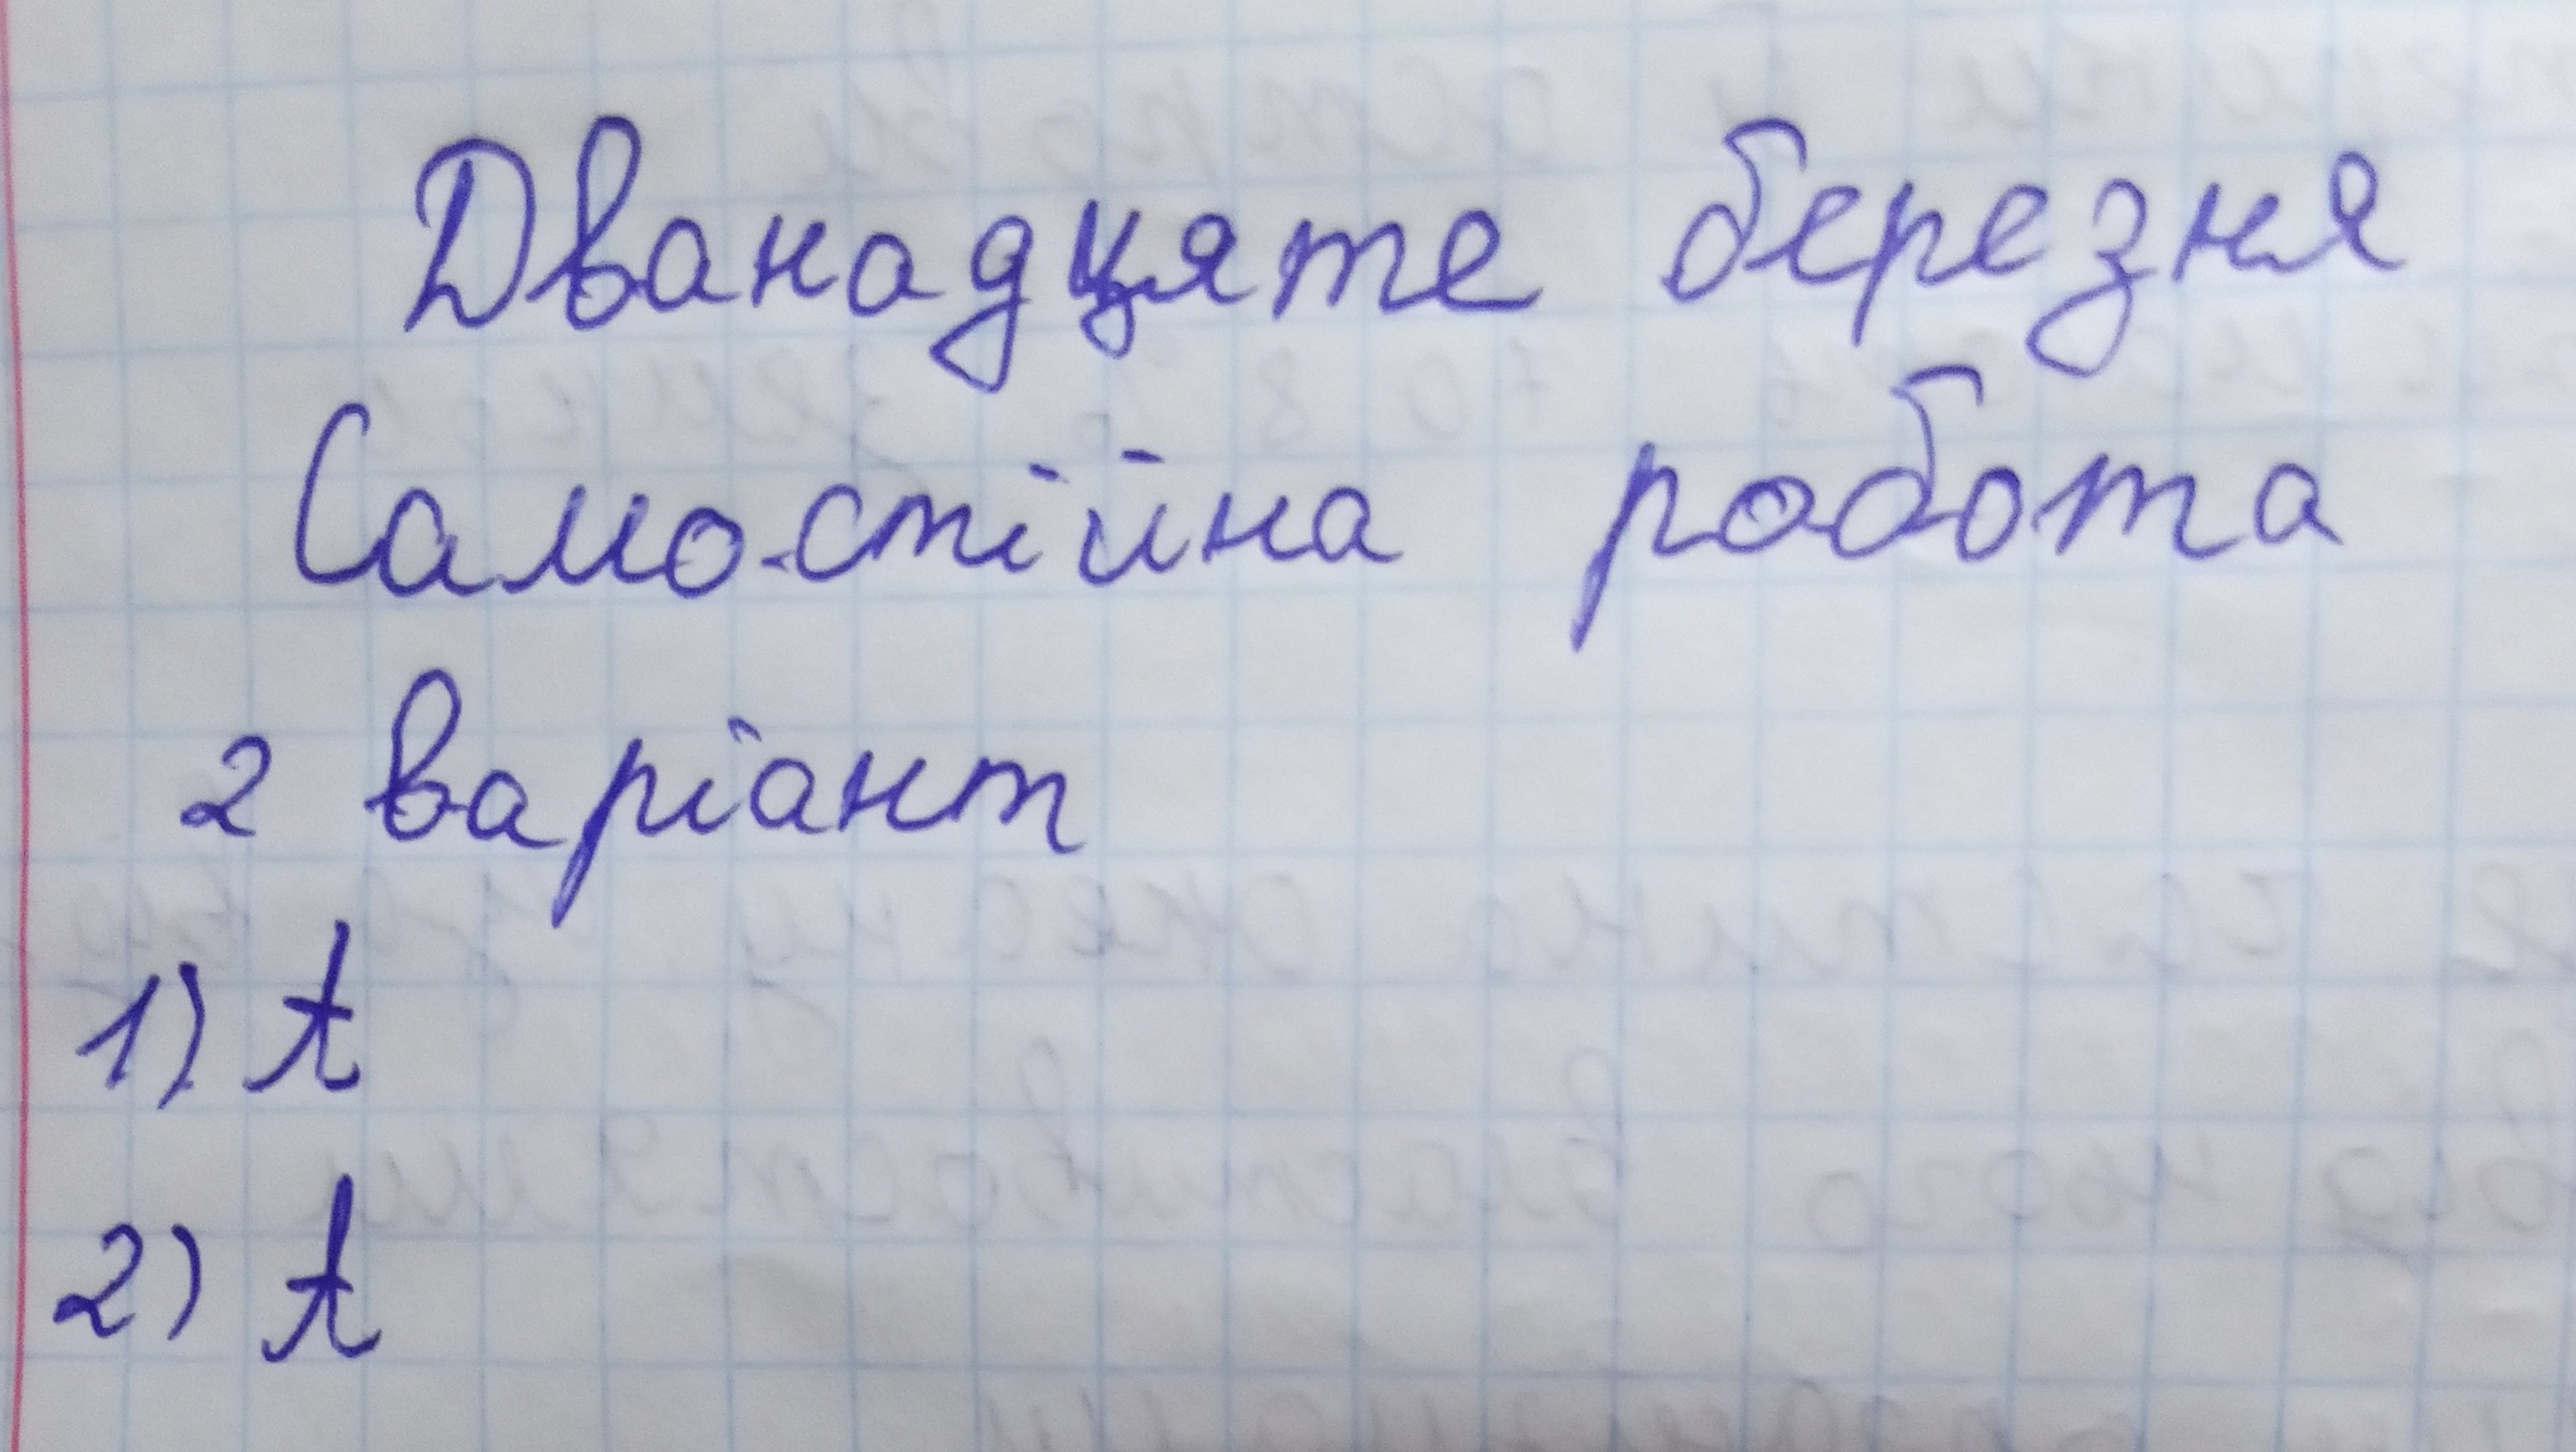 Дванадцяте березня
Самостійна робота
2 варіант
1) А
2) А